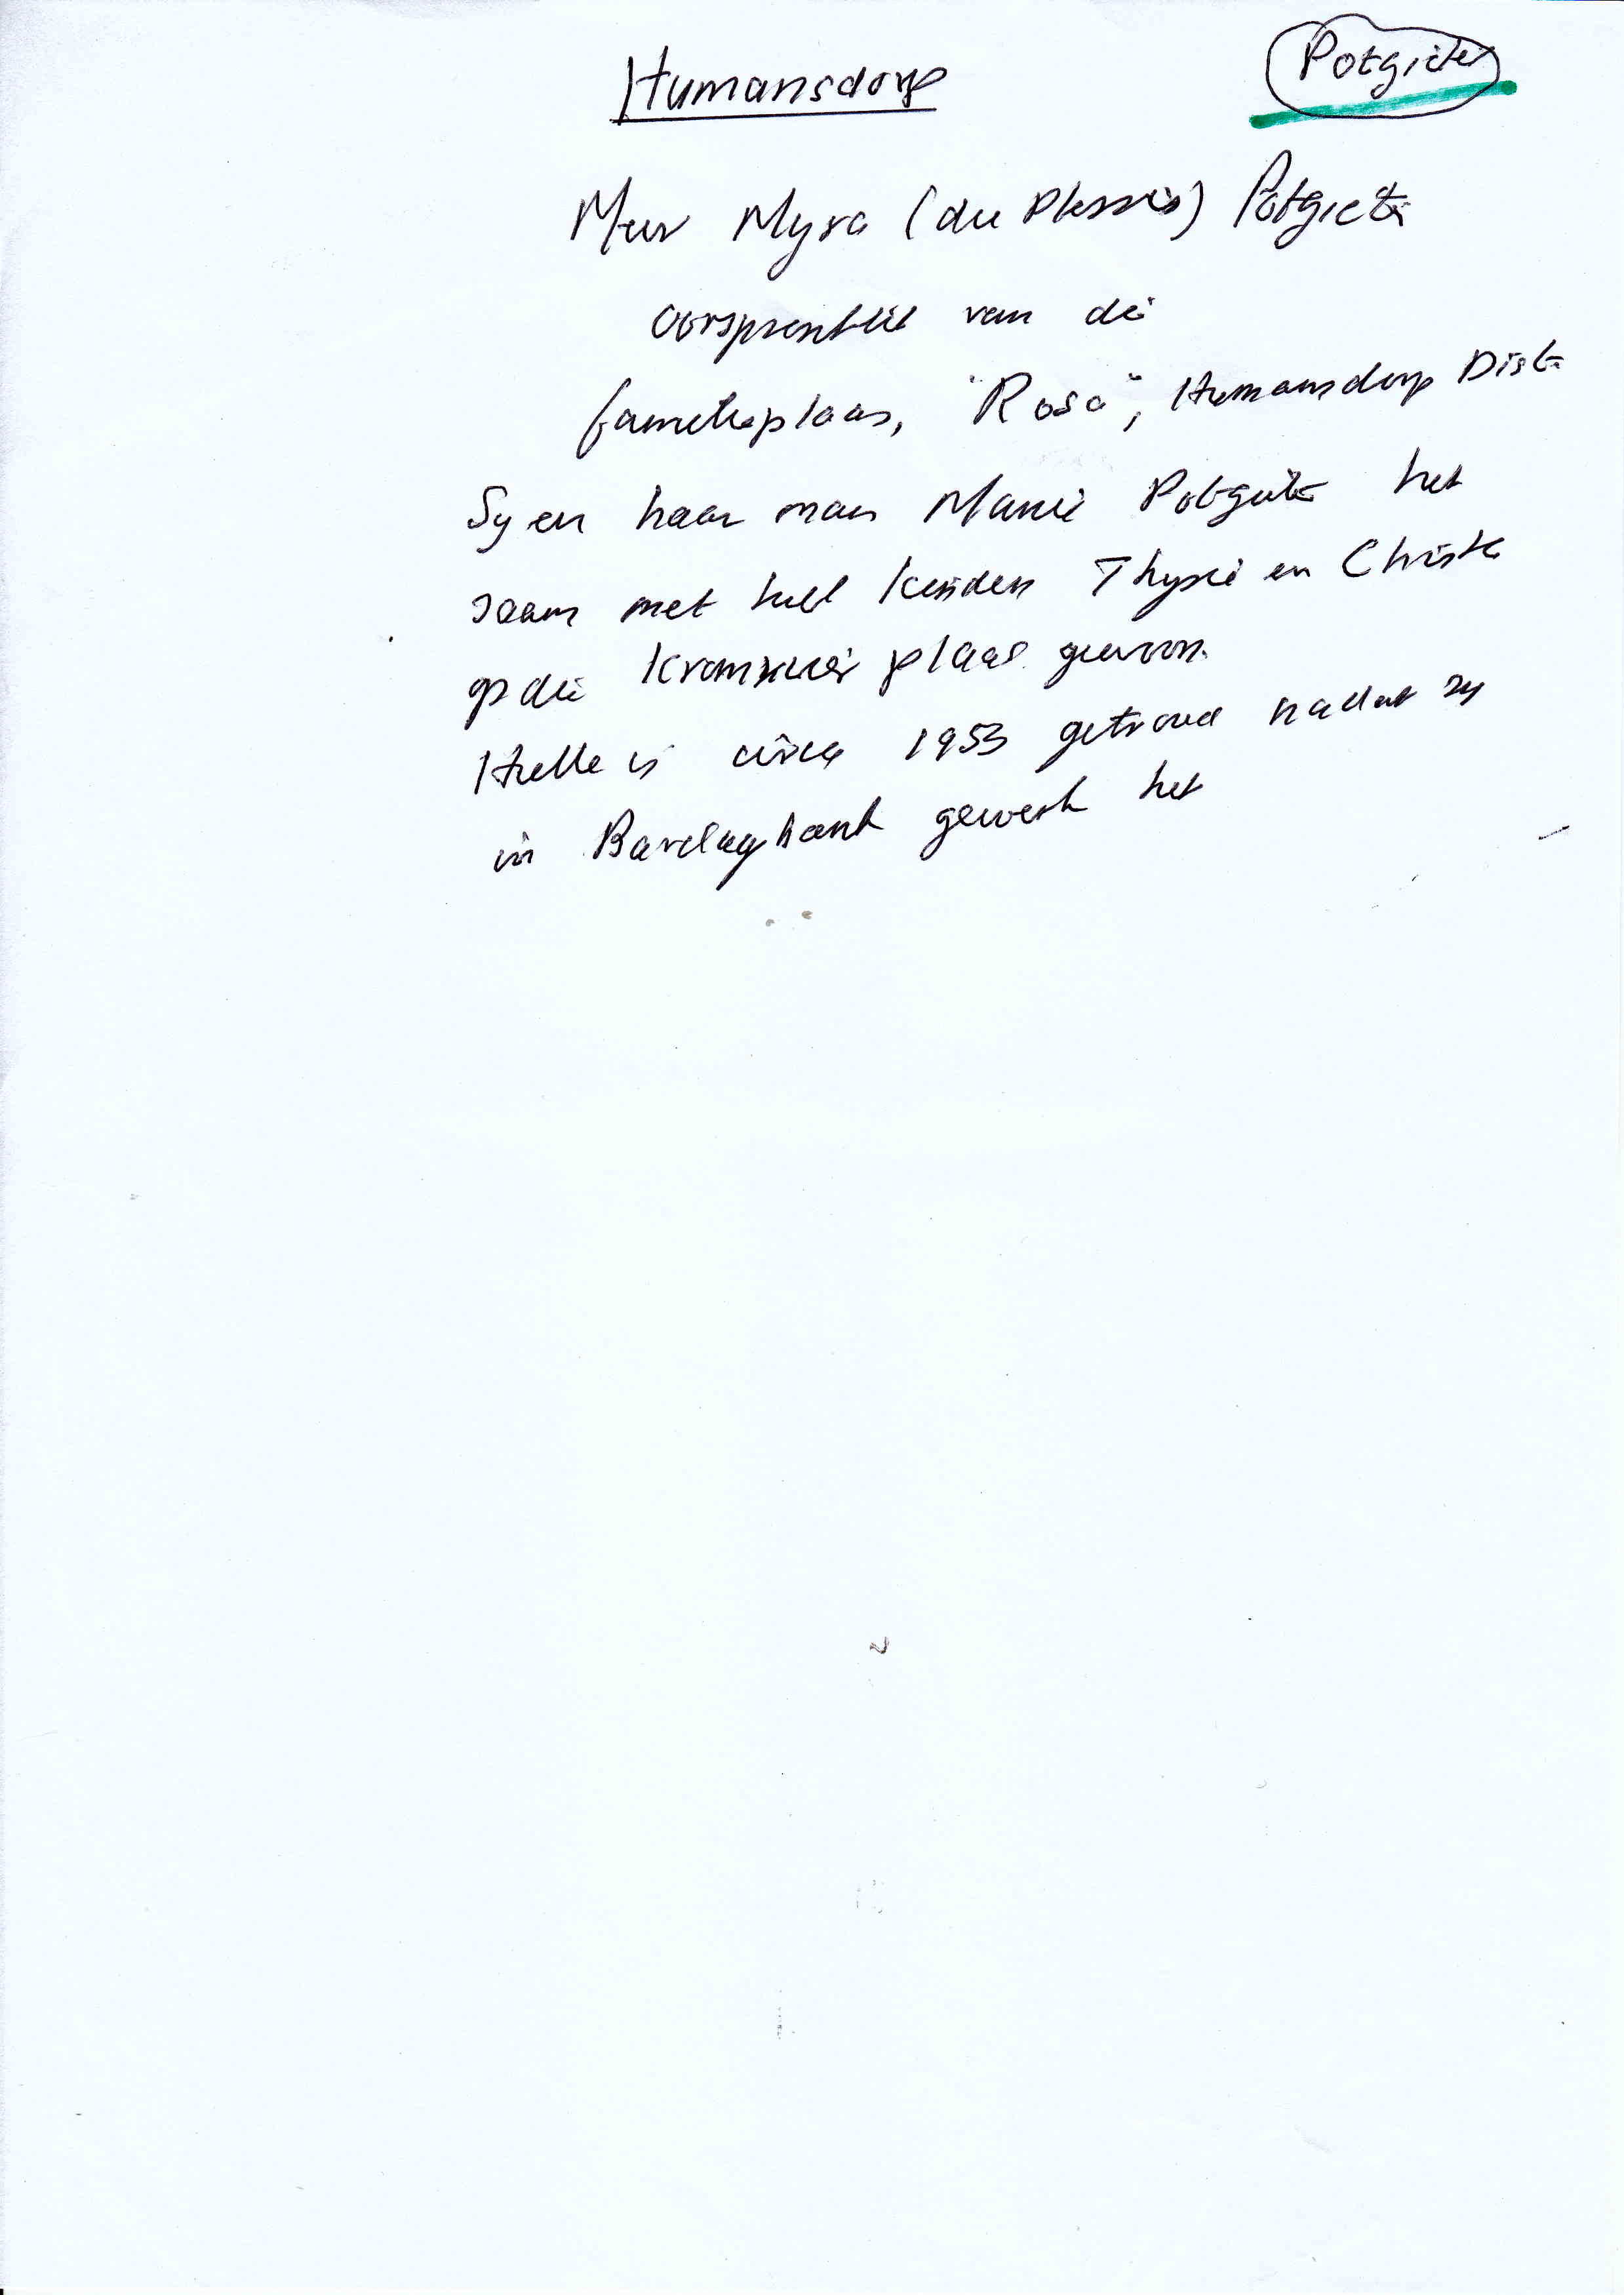 Humansdorp
Potgieter
Mev Myra (du Plessis) Potgieter
oorspronklik van die
familieplaas, "Rosa", Humansdorp Dist.
Sy en haar man Manie Potgieter het
saam met hul kinders Thysie en Christa
op die Kromrivier plaas gewoon.
Hulle is circa 1953 getroud nadat sy
in Barclaybank gewerk het